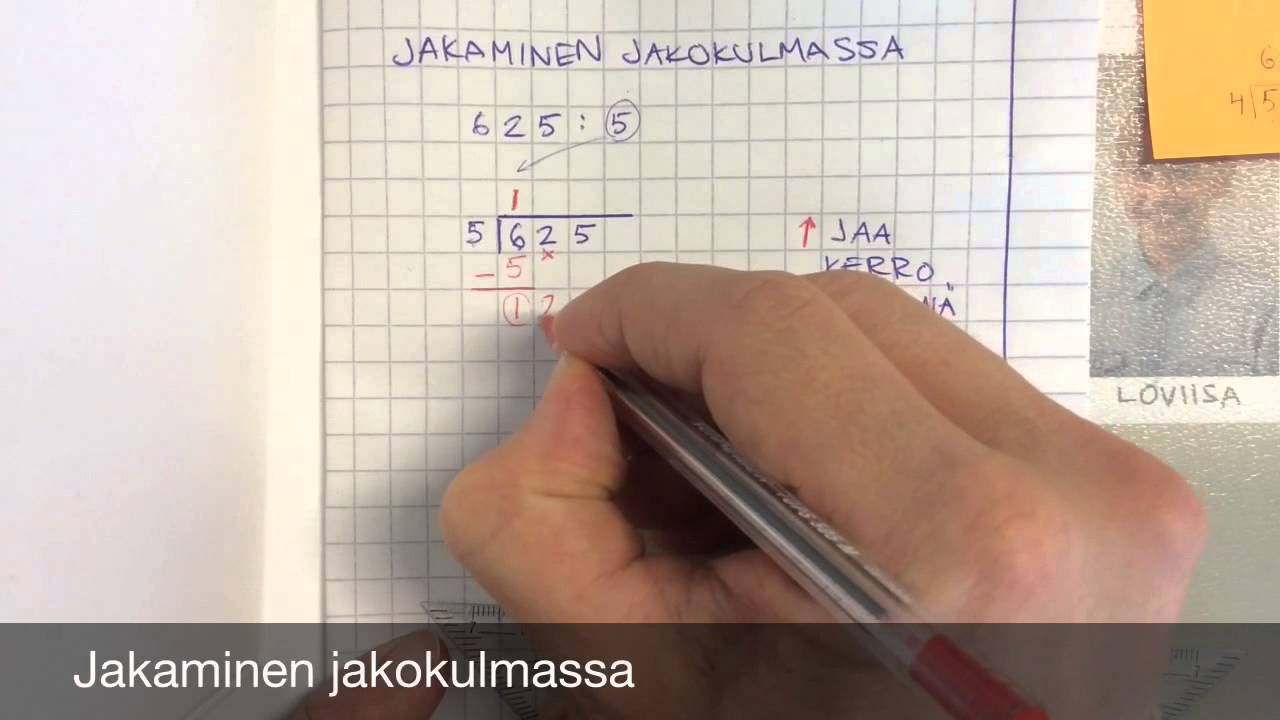 JAKAMINEN JAKOKULMASSA
625 : 5
1
5 625
- 5 x
1 2
↑ JAA
KERRO
6
4 5
LOVIISA
Jakaminen jakokulmassa